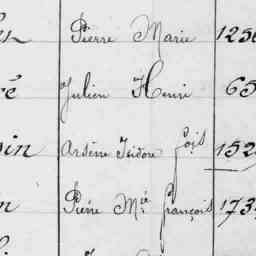 Pierre Marie 1256
Julien Henri 65
Arsène Isidore fois 152
Pierre Mie françois 173